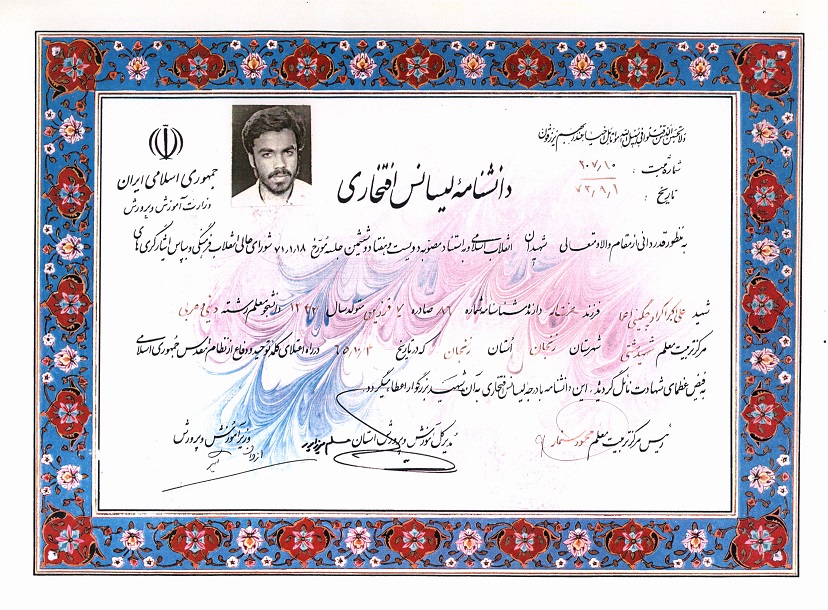 ولا تحسبن الذین قتلوا فی سبیل الله امواتا بل احیاء عند ربهم یرزقون
جمهوری اسلامی ایران
وزارت آموزش و پرورش
دانشنامهٔ لیسانس افتخاری
شماره ثبت : ۲۰۷/۱۰
تاریخ : ۷۲/۹/۱
به منظور قدردانی از مقام والا و متعالی شهیدان انقلاب اسلامی و به استناد مصوبه دویست و هفتاد و ششمین جلسه مورخ ۷۱/۱/۱۸ شورای عالی انقلاب فرهنگی و بپاس ایثارگری های
شهید علی اکبر فرزند دارنده شناسنامه شماره ۸۶ صادره ۷ متولد سال ۱۳۴۲ دانشجو معلم رشته دینی و عربی
مرکز تربیت معلم شهید بهشتی شهرستان زنجان استان زنجان که در تاریخ ۶۵/۲/۳ در راه اعتلای کلمه توحید و دفاع از نظام مقدس جمهوری اسلامی
به فیض عظمای شهادت نائل گردیده، این دانشنامه با درجه لیسانس افتخاری به آن شهید بزرگوار اعطاء میگردد
رئیس مرکز تربیت معلم مدیر کل آموزش و پرورش استان وزیر آموزش و پرورش